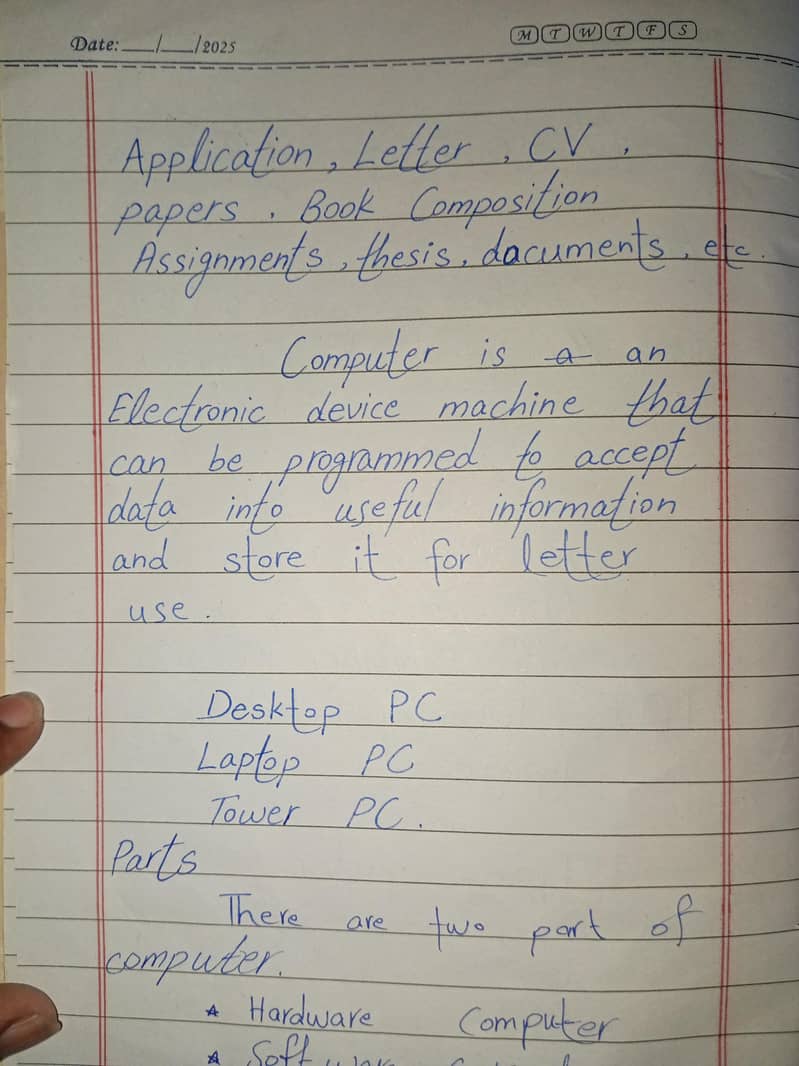 Date: ___/___/2025
M T W T F S
Application, Letter, CV,
papers, Book Composition
Assignments, thesis, dacuments, etc.
Computer is a an
Electronic device machine that
can be programmed to accept
data into useful information
and store it for letter
use.
Desktop PC
Laptop PC
Tower PC.
Parts
There are two part of
computer.
* Hardware Computer
* Software